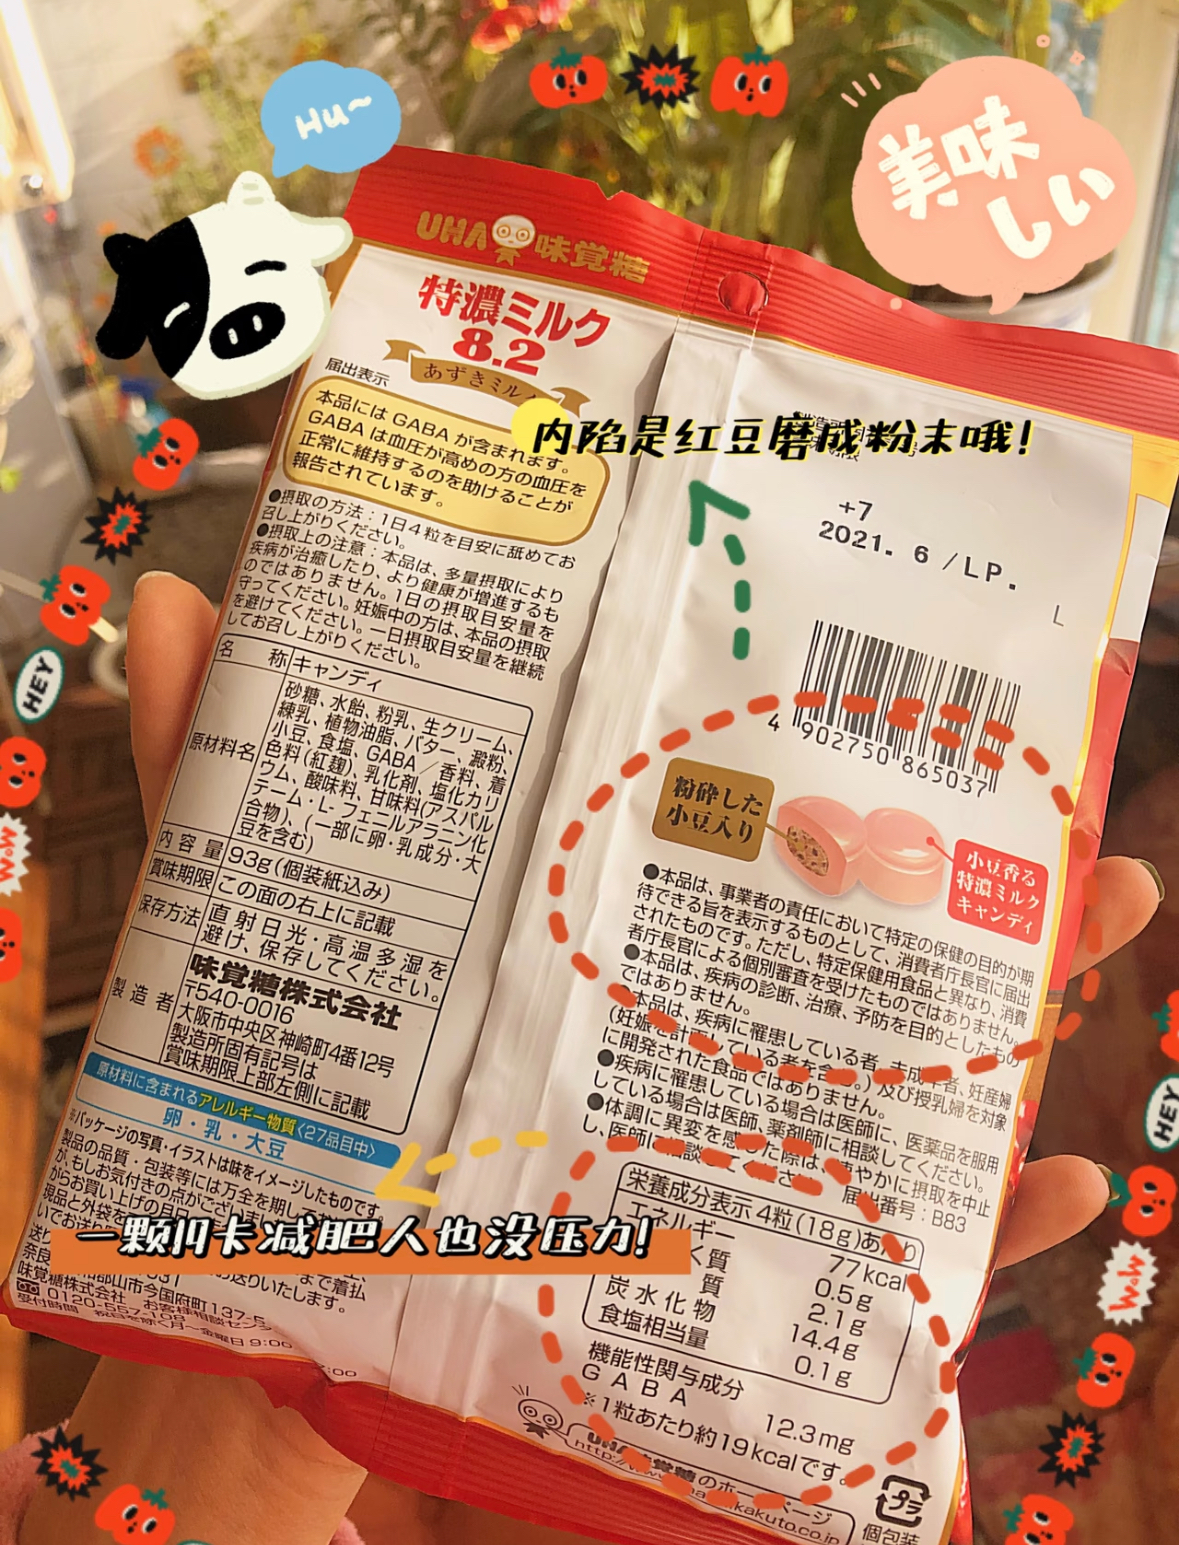 Hu~
美味
しい
UHA 味覚糖
特濃ミルク
8.2
あずきミルク
届出表示
本品にはGABAが含まれます。
GABAは血圧が高めの方の血圧を
正常に維持するのを助けることが
報告されています。
●摂取の方法：1日4粒を目安に舐めてお
召し上がりください。
●摂取上の注意：本品は、多量摂取により
疾病が治癒したり、より健康が増進するも
のではありません。1日の摂取目安量を
守ってください。妊娠中の方は、本品の摂取
を避けてください。一日摂取目安量を継続
してお召し上がりください。
名称 キャンディ
原材料名
砂糖、水飴、粉乳、生クリーム、
練乳、植物油脂、バター、澱粉、
小豆、食塩、GABA／香料、着
色料(紅麹)、乳化剤、塩化カリ
ウム、酸味料、甘味料(アスパル
テーム・L-フェニルアラニン化
合物)、(一部に卵・乳成分・大
豆を含む)
内容量 93g(個装紙込み)
賞味期限 この面の右上に記載
保存方法 直射日光・高温多湿を
避け、保存してください。
製造者
味覚糖株式会社
〒540-0016
大阪市中央区神崎町4番12号
製造所固有記号は
賞味期限上部左側に記載
原材料に含まれるアレルギー物質〈27品目中〉
卵・乳・大豆
※パッケージの写真・イラストは味をイメージしたものです。
製品の品質・包装等には万全を期し
が、もしお気付きの点がござい
がらお買い上げの月日
現品と外袋を
いでお送り
一颗19卡减肥人也没压力!
お送りいたします。
郡山市今国府町137-5
味覚糖株式会社 お客様相談センター
0120-557-108
受付時間 祝日を除く月～金曜日 9:00
内陷是红豆磨成粉末哦!
+7
2021. 6 /LP.
L
4 902750 865037
粉砕した
小豆入り
小豆香る
特濃ミルク
キャンディ
●本品は、事業者の責任において特定の保健の目的が期
待できる旨を表示するものとして、消費者庁長官に届出
されたものです。ただし、特定保健用食品と異なり、消費
者庁長官による個別審査を受けたものではありません。
●本品は、疾病の診断、治療、予防を目的としたもの
ではありません。
●本品は、疾病に罹患している者、未成年者、妊産婦
(妊娠を計画している者を含む。)及び授乳婦を対象
に開発された食品ではありません。
●疾病に罹患している場合は医師に、医薬品を服用
している場合は医師、薬剤師に相談してください。
●体調に異変を感じた際は、速やかに摂取を中止
し、医師に相談してください。
届出番号：B83
栄養成分表示 4粒(18g)あたり
エネルギー 77kcal
く質 0.5g
質 2.1g
炭水化物 14.4g
食塩相当量 0.1g
機能性関与成分
GABA 12.3mg
※1粒あたり約19kcalです。
UHA味覚糖のホームページ
kakuto.co.jp
プラ
個包装
HEY
WOW
HEY
WOW